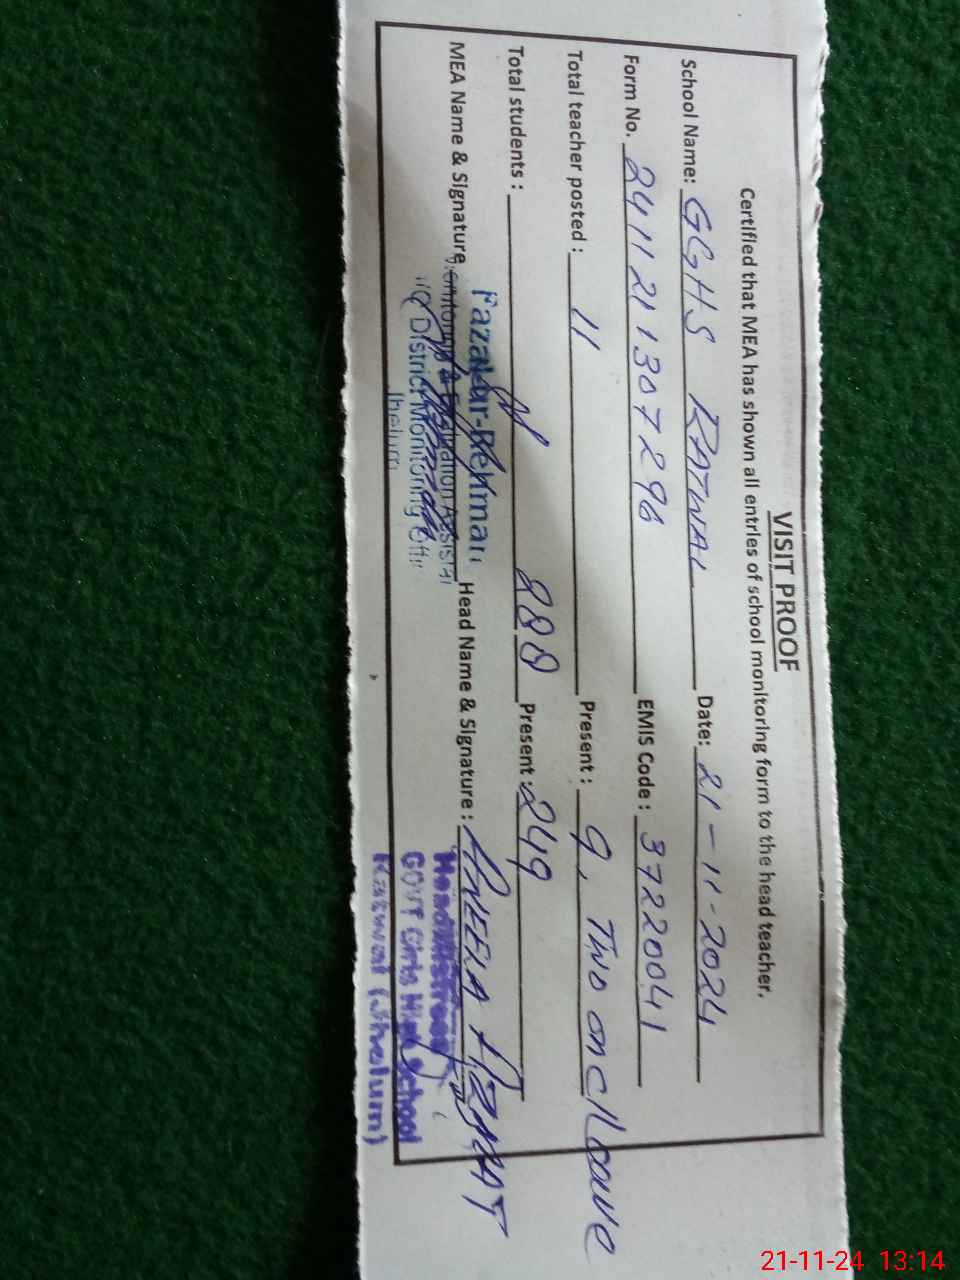 VISIT PROOF
Certified that MEA has shown all entries of school monitoring form to the head teacher.
School Name: GGHS RATWAL Date: 21-11-2024
Form No. 2411211307296 EMIS Code: 37220041
Total teacher posted: 11 Present: 9, Two on c/Leave
Total students: 288 Present: 249
MEA Name & Signature Head Name & Signature: ANEELA AZMAT
Fazal-ur-Rehman
Monitoring & Evaluation Assistant
District Monitoring Offic
Jhelum
Headmistress
GOVT Girls High School
Ratwal (Jhelum)
21-11-24 13:14